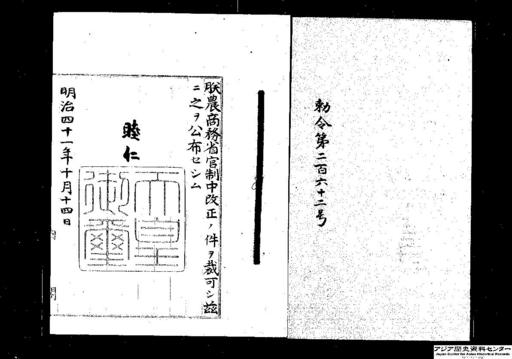 勅令第二百六十二号
朕農商務省官制中改正ノ件ヲ裁可シ茲
ニ之ヲ公布セシム
睦仁
天皇御璽
明治四十一年十月十四日
内閣
アジア歴史資料センター
Japan Center for Asian Historical Records